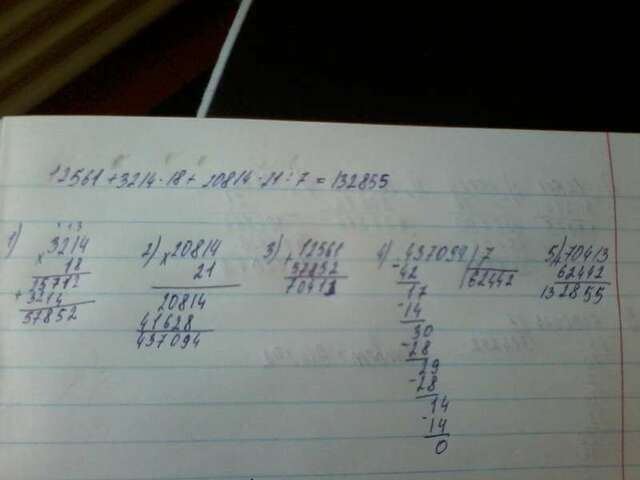 12561 + 3214 · 18 + 20814 · 21 : 7 = 132855
1) × 3214
18
25712
+ 3214
57852
2) × 20814
21
20814
41628
437094
3) + 12561
57852
70413
4) - 437094 | 7
42 62442
17
- 14
30
- 28
29
- 28
14
- 14
0
5) + 70413
62442
132855